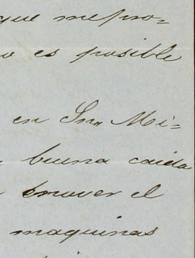 que me pro-
o es posible
en Sn. Mi-
buena caida
mover el
maquinas